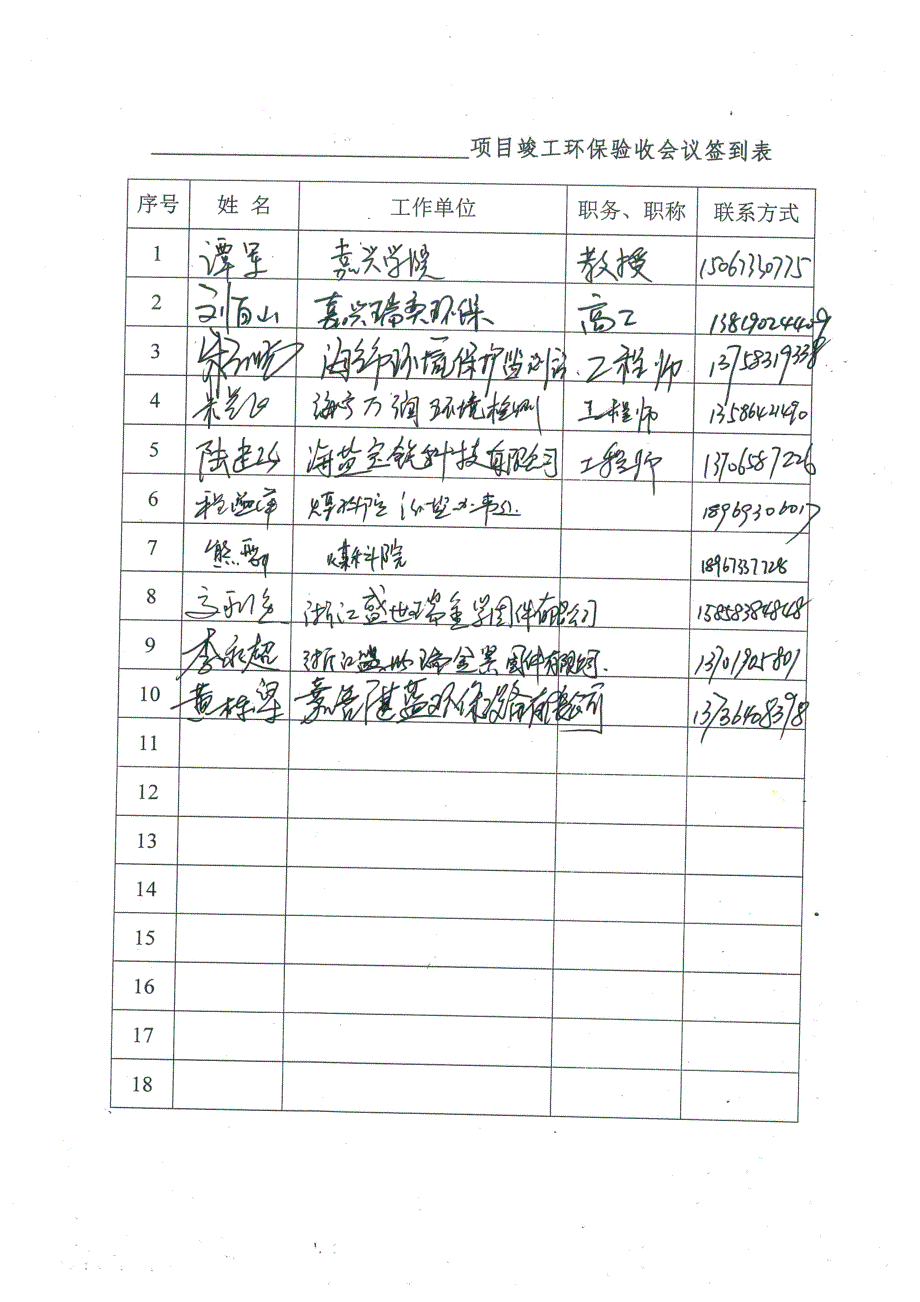 项目竣工环保验收会议签到表
序号 姓 名 工作单位 职务、职称 联系方式
1 谭军 嘉兴学院 教授 15067330775
2 刘百山 嘉兴瑞奕环保 高工 13819024409
3 海宁市环境保护监测站 工程师 13758319338
4 海宁万润环境检测 工程师 13586421490
5 陆建 海盐宝铳科技有限公司 工程师 13706587226
6 煤科院 办事处 18969306017
7 熊 煤科院 18967337728
8 浙江盛世瑞金 固件有限公司 15858384848
9 李永超 浙江 瑞金 固件有限公司. 13701925801
10 黄栋梁 嘉 蓝环保设备有限公司 13736408398
11
12
13
14
15
16
17
18